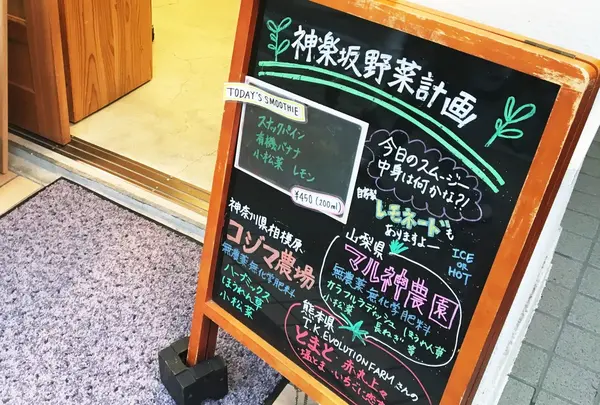 神楽坂野菜計画
TODAY'S SMOOTHIE
スナックパイン
有機バナナ
小松菜 レモン
¥450(200ml)
今日のスムージー
中身は何かな?!
自家製
レモネードも
ありますよー
ICE
OR
HOT
神奈川県相模原
コジマ農場
無農薬無化学肥料
ハーブミックス
ほうれん草
小松菜
山梨県
マル神農園
無農薬無化学肥料
カラフルラディッシュ ほうれん草
小松菜 長ねぎ 等
熊本県
T.K.EVOLUTION FARMさんの
とまと・赤丸上々
塩とま・いちごに